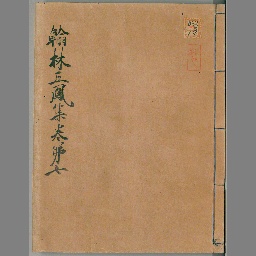 翰林五鳳集卷第七